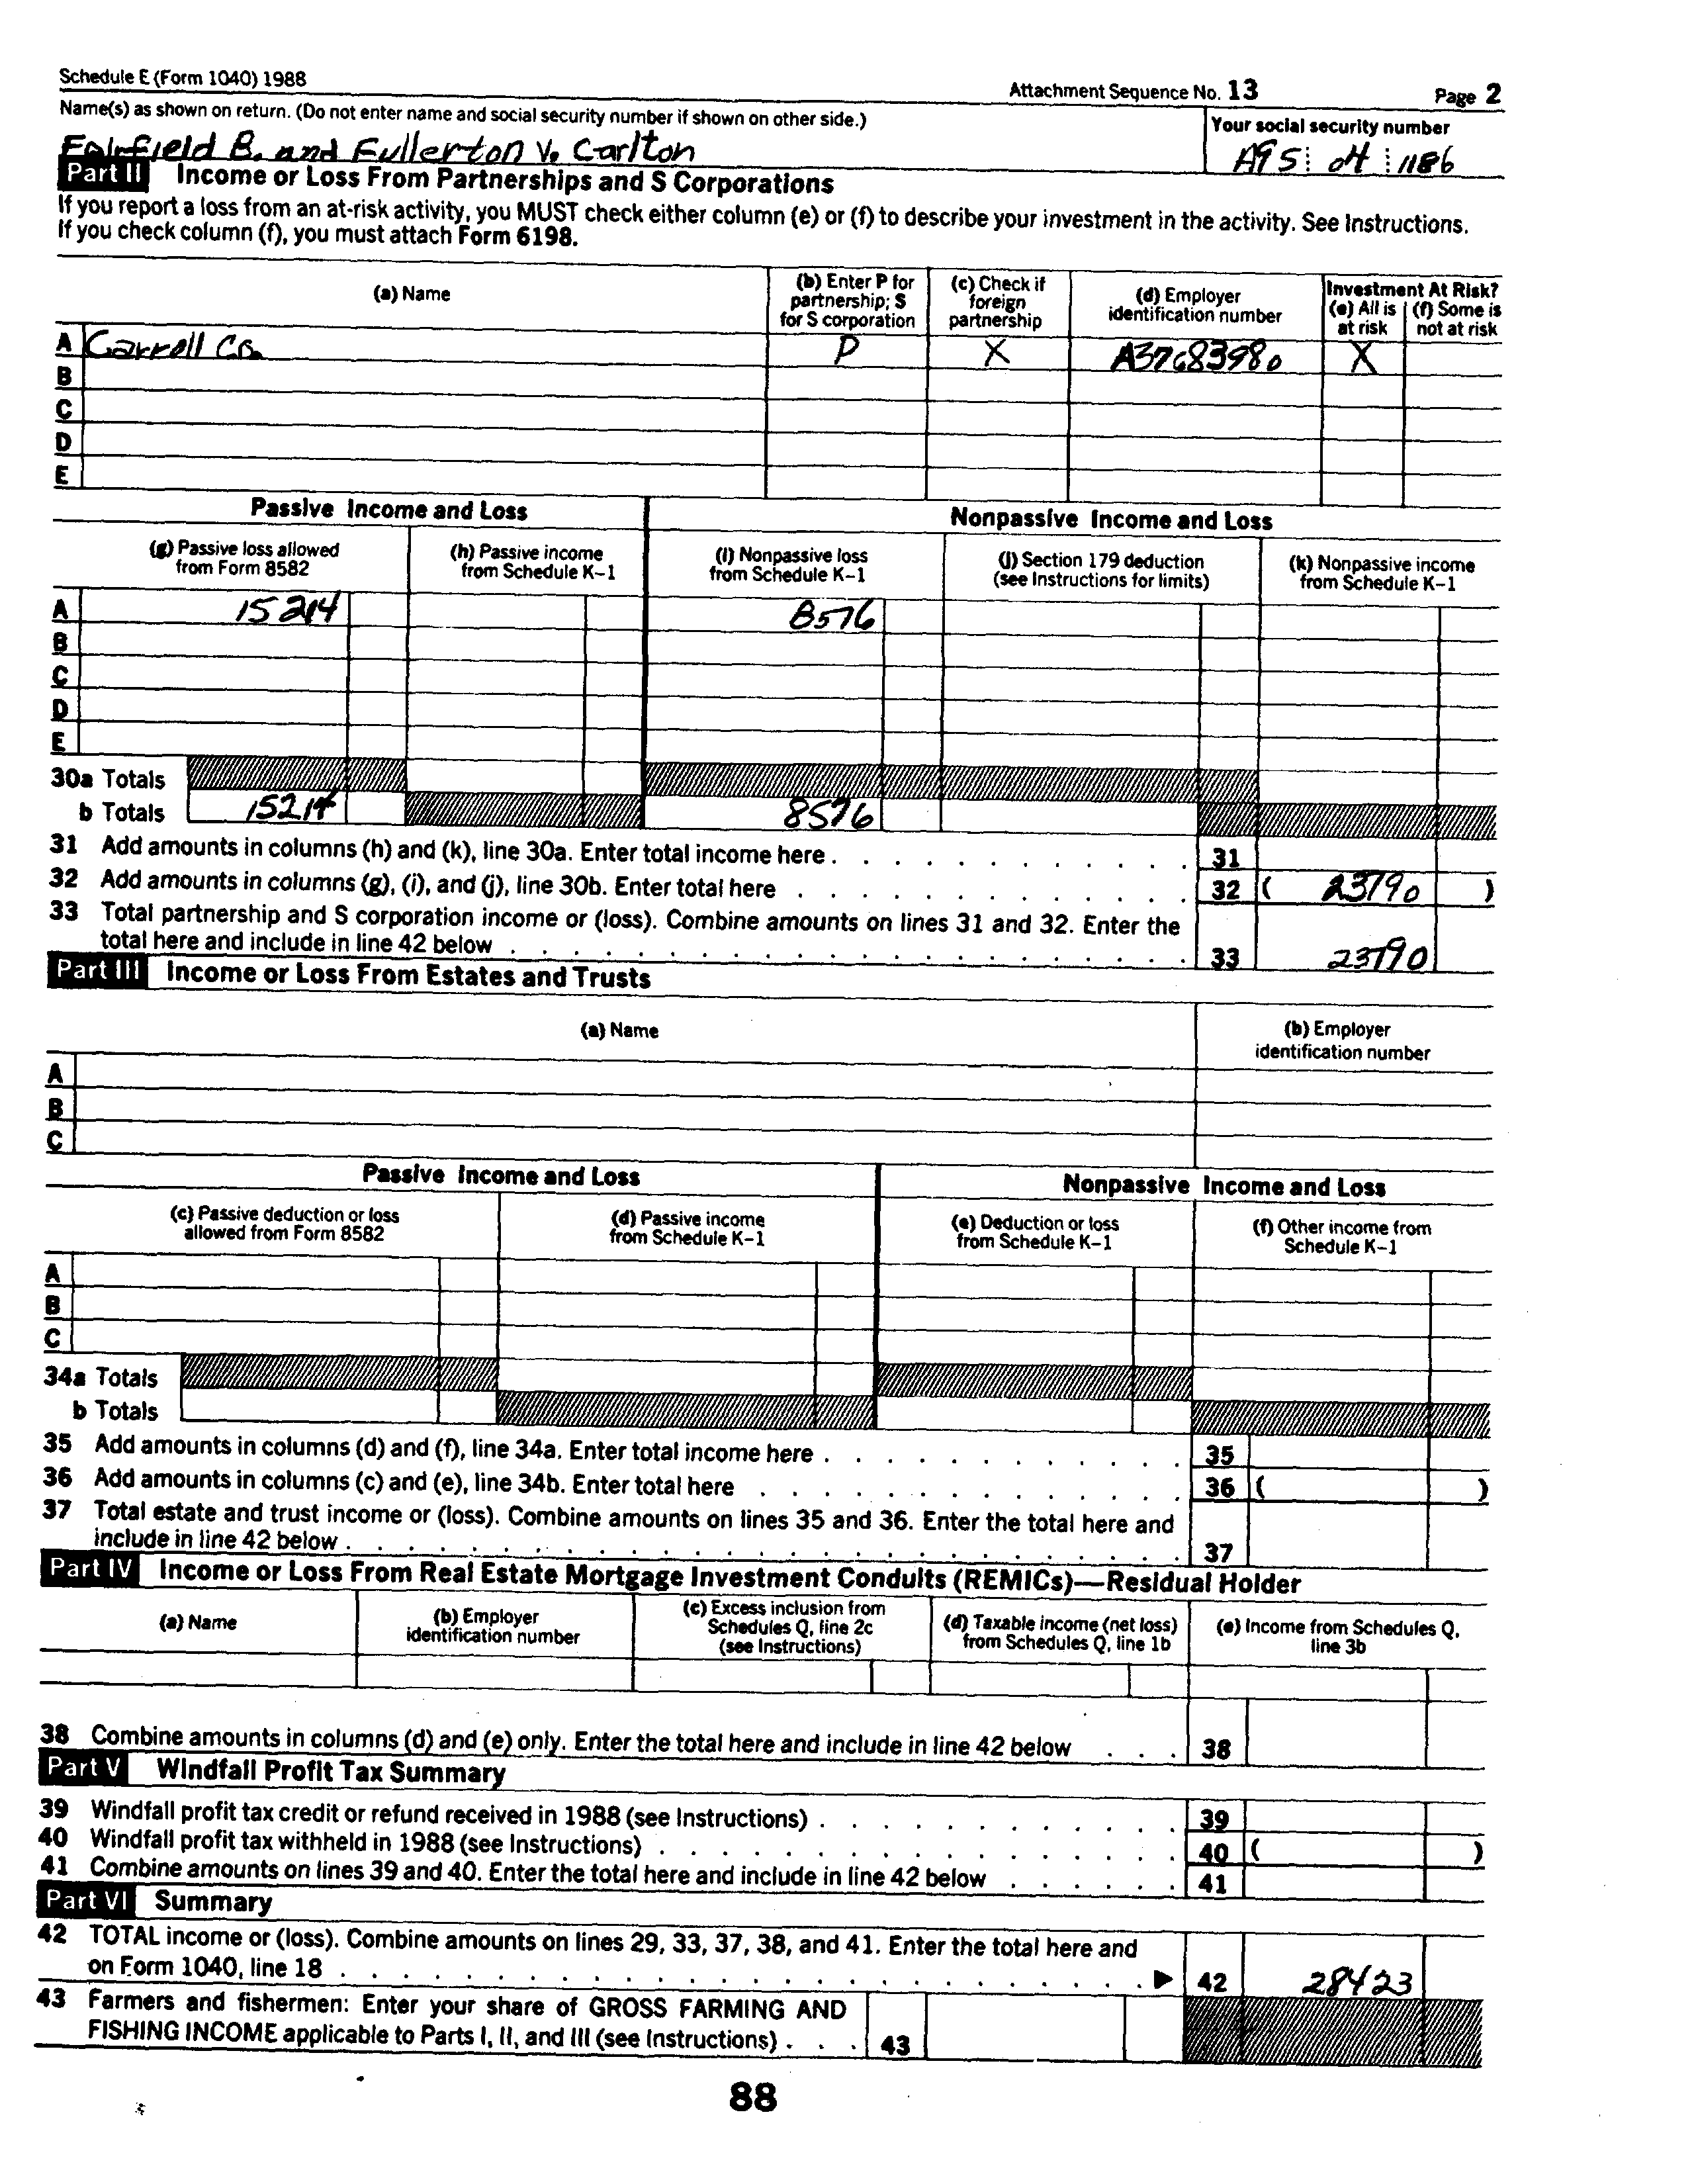 Schedule E (Form 1040) 1988
Attachment Sequence No. 13
Page 2
Name(s) as shown on return. (Do not enter name and social security number if shown on other side.)
Your social security number
Fairfield B. and Fullerton V. Carlton
A95 04 1186
Part II Income or Loss From Partnerships and S Corporations
If you report a loss from an at-risk activity, you MUST check either column (e) or (f) to describe your investment in the activity. See Instructions.
If you check column (f), you must attach Form 6198.
(a) Name
(b) Enter P for partnership; S for S corporation
(c) Check if foreign partnership
(d) Employer identification number
Investment At Risk?
(e) All is at risk
(f) Some is not at risk
A Carroll Co. P X A37683980 X
B
C
D
E
Passive Income and Loss
Nonpassive Income and Loss
(g) Passive loss allowed from Form 8582
(h) Passive income from Schedule K-1
(i) Nonpassive loss from Schedule K-1
(j) Section 179 deduction (see Instructions for limits)
(k) Nonpassive income from Schedule K-1
A 15214 8576
B
C
D
E
30a Totals
b Totals 15214 8576
31 Add amounts in columns (h) and (k), line 30a. Enter total income here . 31
32 Add amounts in columns (g), (i), and (j), line 30b. Enter total here 32 ( 23790 )
33 Total partnership and S corporation income or (loss). Combine amounts on lines 31 and 32. Enter the
total here and include in line 42 below 33 23790
Part III Income or Loss From Estates and Trusts
(a) Name
(b) Employer identification number
A
B
C
Passive Income and Loss
Nonpassive Income and Loss
(c) Passive deduction or loss allowed from Form 8582
(d) Passive income from Schedule K-1
(e) Deduction or loss from Schedule K-1
(f) Other income from Schedule K-1
A
B
C
34a Totals
b Totals
35 Add amounts in columns (d) and (f), line 34a. Enter total income here . 35
36 Add amounts in columns (c) and (e), line 34b. Enter total here 36 ( )
37 Total estate and trust income or (loss). Combine amounts on lines 35 and 36. Enter the total here and
include in line 42 below . 37
Part IV Income or Loss From Real Estate Mortgage Investment Conduits (REMICs)—Residual Holder
(a) Name
(b) Employer identification number
(c) Excess inclusion from Schedules Q, line 2c (see Instructions)
(d) Taxable income (net loss) from Schedules Q, line 1b
(e) Income from Schedules Q, line 3b
38 Combine amounts in columns (d) and (e) only. Enter the total here and include in line 42 below 38
Part V Windfall Profit Tax Summary
39 Windfall profit tax credit or refund received in 1988 (see Instructions) . 39
40 Windfall profit tax withheld in 1988 (see Instructions) . 40 ( )
41 Combine amounts on lines 39 and 40. Enter the total here and include in line 42 below 41
Part VI Summary
42 TOTAL income or (loss). Combine amounts on lines 29, 33, 37, 38, and 41. Enter the total here and
on Form 1040, line 18 . ▶ 42 28423
43 Farmers and fishermen: Enter your share of GROSS FARMING AND
FISHING INCOME applicable to Parts I, II, and III (see Instructions) . 43
88